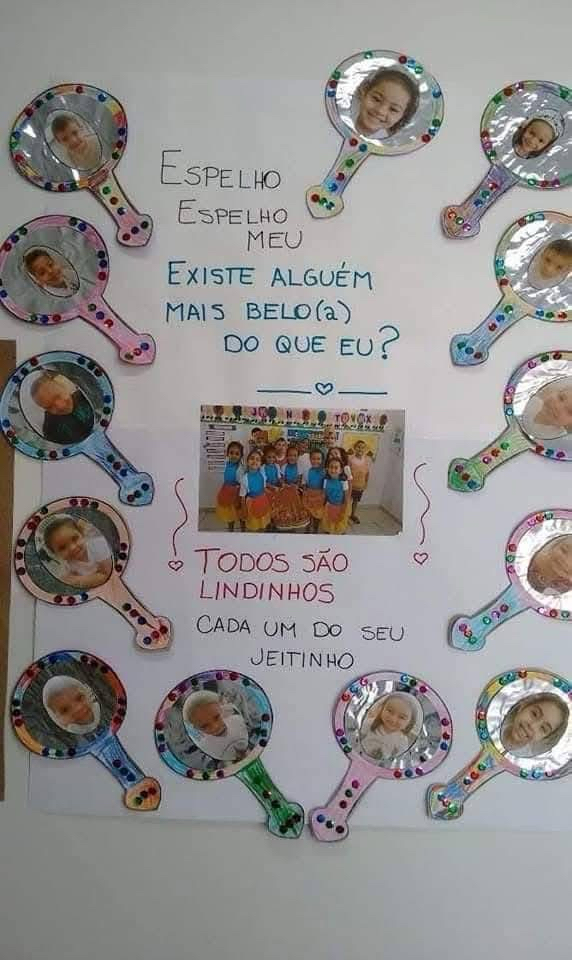 ESPELHO
ESPELHO
MEU
EXISTE ALGUÉM
MAIS BELO(a)
DO QUE EU?
TODOS SÃO
LINDINHOS
CADA UM DO SEU
JEITINHO